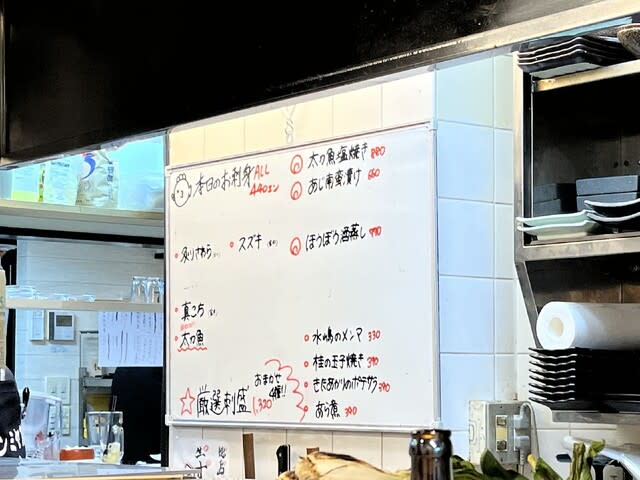 本日のお刺身 ALL
440エン
炙りさわら
スズキ
真こち
太刀魚
厳選刺盛 1,320
おまかせ
4種!!
太刀魚塩焼き 880
あじ南蛮漬け 660
ほうぼう酒蒸し
水嶋のメンマ 330
桂の玉子焼き 390
きたあかりのポテサラ 390
あら煮 390